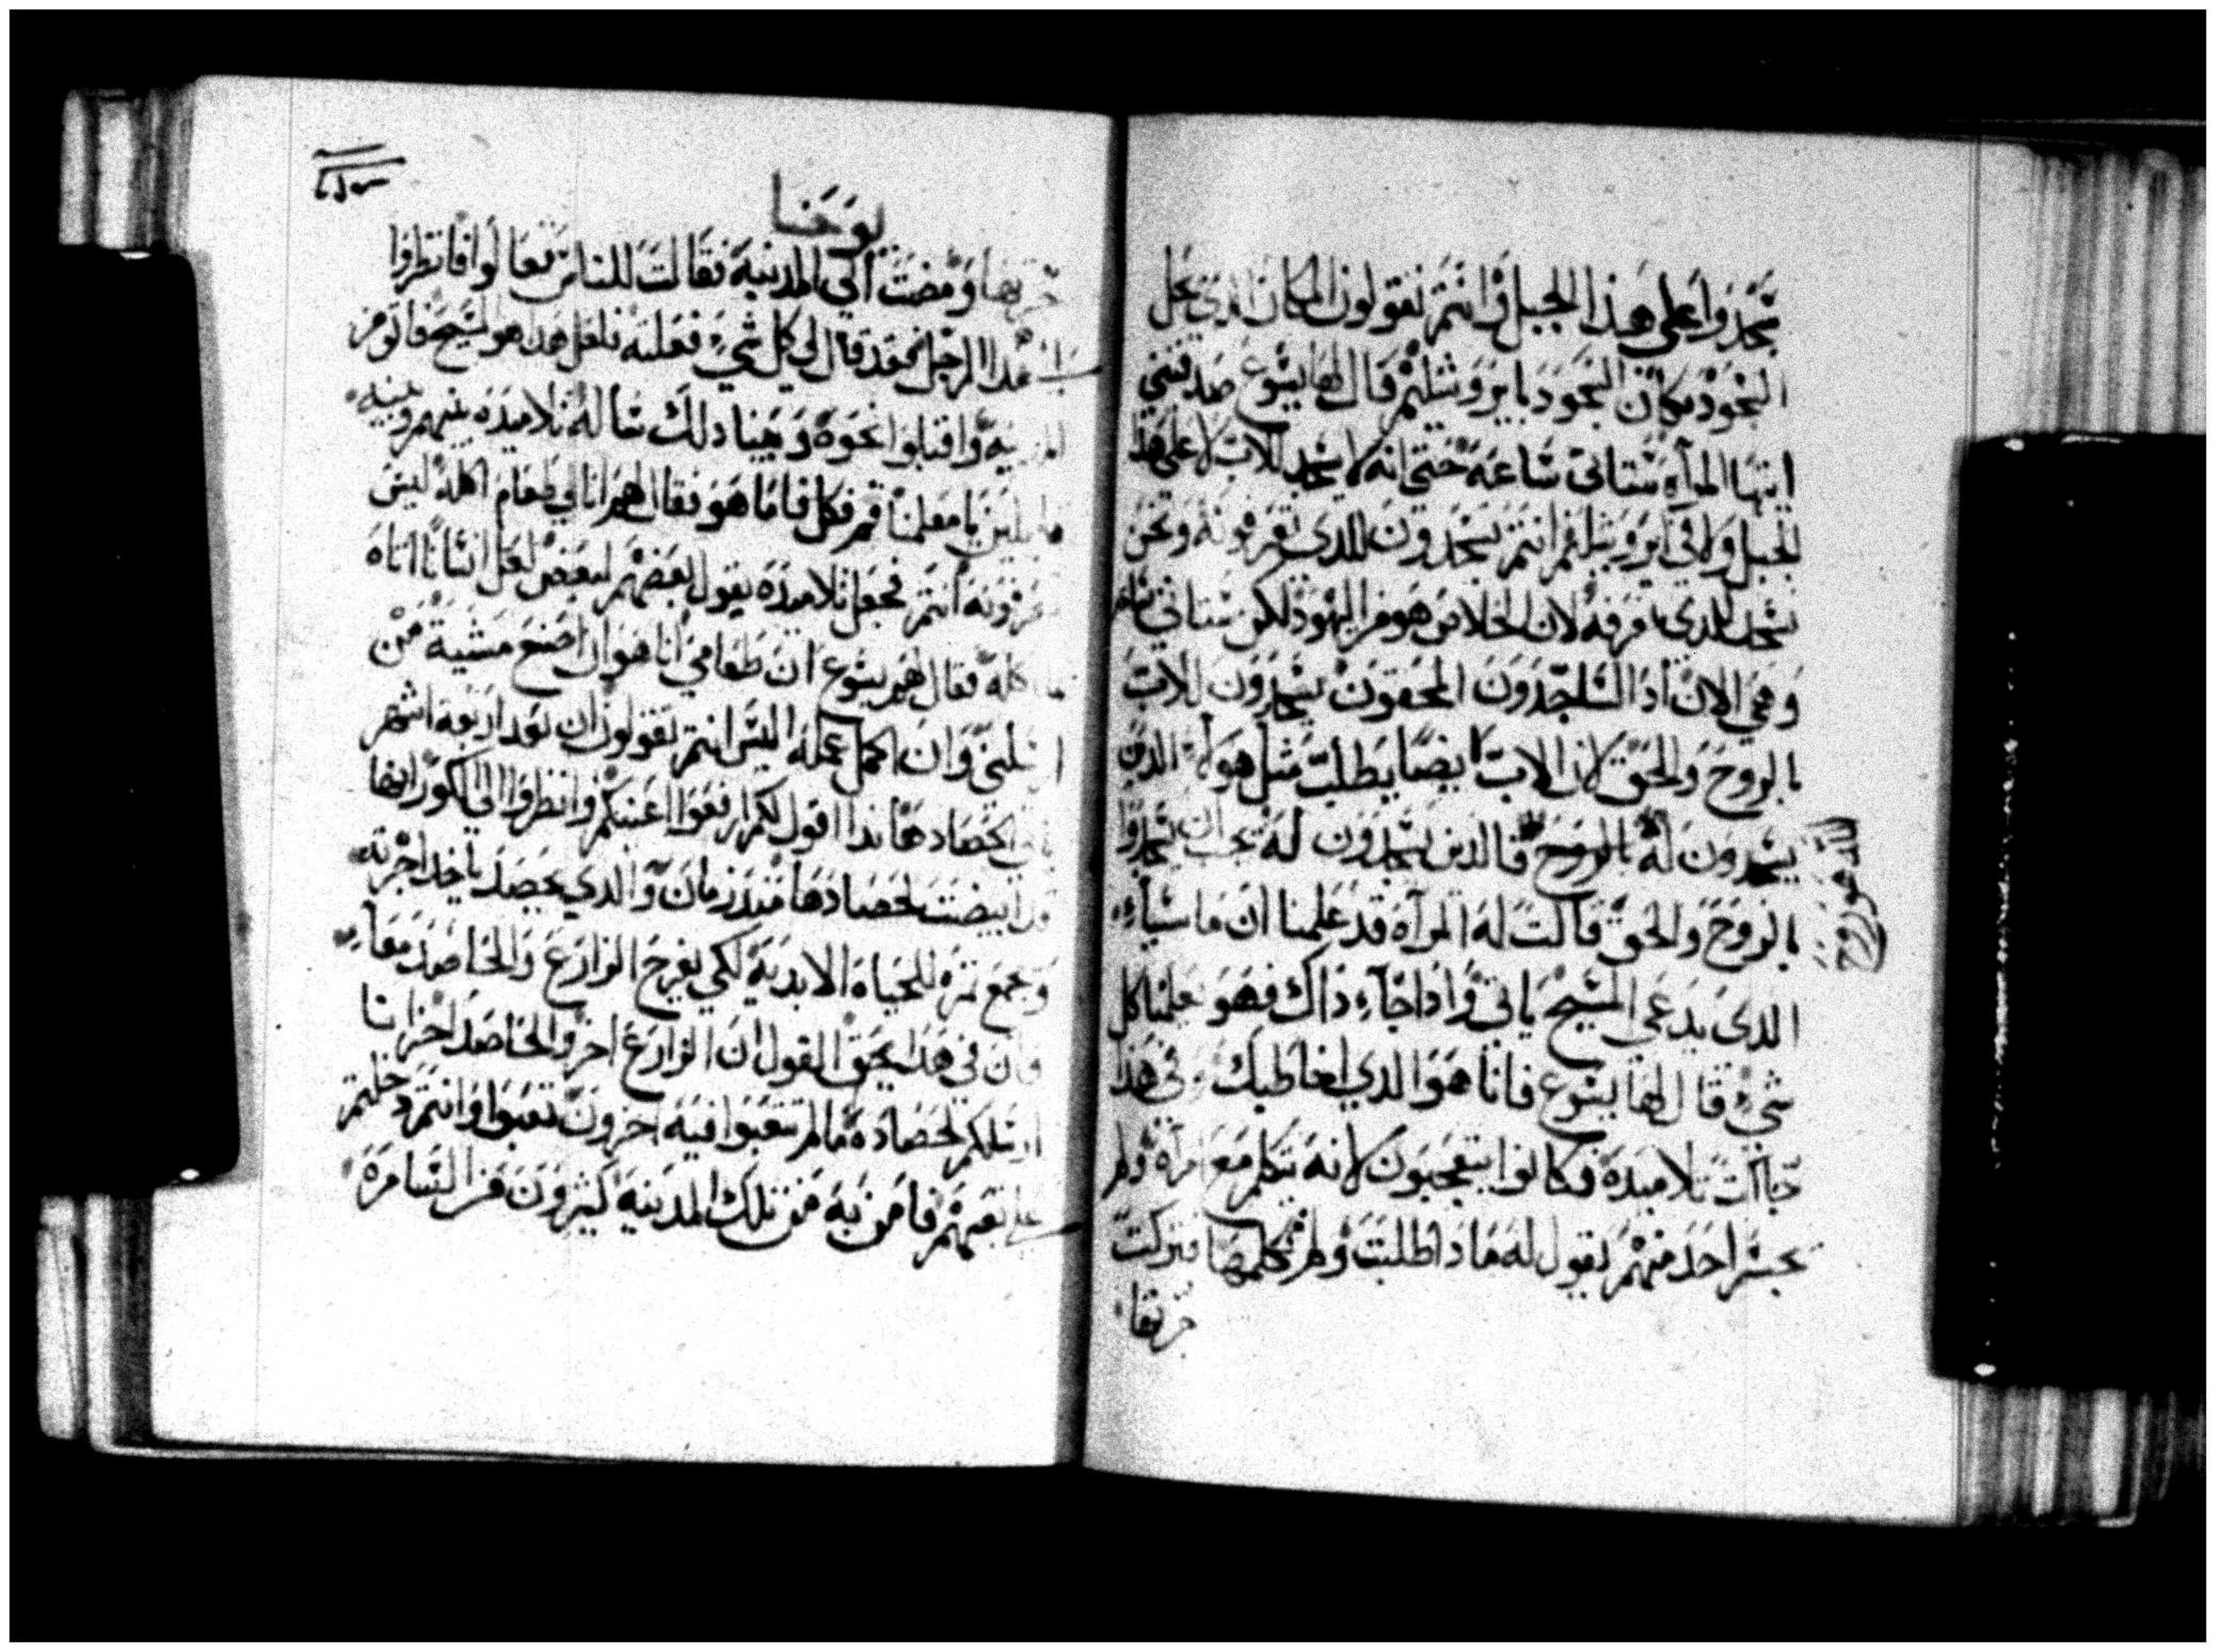 سجدوا على هذا الجبل وانتم تقولون المكان الذي يحل
السجود مكان السجود بايروشليم قال لها يسوع صدقيني
ايتها المرآه ستاتى ساعه حتى انه لا يسجد للاب لا على هذا
الجبل ولا في ايروشليم انتم تسجدون للذى تعرفونه ونحن
نسجد للدي نعرفه لان الخلاص هو من اليهود لكن ستاتي ساعه
وهي الان اذ الساجدون المحقون يسجدون للاب
بالروح والحق لان الاب ايضا يطلب مثل هولا الذين
يسجدون له بالروح فالذين يسجدون له يجب ان يسجدوا
الله هو روح
بالروح والحق قالت له المرآه قد علمنا ان ماسيا
الدى يدعى المسيح ياتي واذا جآء ذاك فهو يعلمنا كل
شيء قال لها يسوع فانا هو الدي اخاطبك وفى هذا
جاات تلاميده فكانوا يتعجبون لانه يتكلم مع امرآه ولم
يجسر احد منهم يقول له ماذا طلبت ولم تكلمها فتركت
جرتها
يوحنا
جرتها ومضت الي المدينه فقالت للناس تعالوا فانظروا
هذا الرجل فقد قال لي كل شيء فعلته فلعل هدا هو المسيح فاتو من
المدينه واقبلوا نحوه وبينا دلك ساله تلاميده بينهم وبينه
قايلين يا معلمنا قم فكل فاما هو فقال لهم انا لي طعام اكله ليس
تعرفونه انتم فجعل تلاميذه يقول بعضهم لبعض لعل انسانا اتاه
ماكله فقال لهم يسوع ان طعامي انا هو ان اصنع مشية من
ارسلني وان اكمل عمله اليس انتم تقولون ان بعد اربعه اشهر
ياتي الحصاد هاندا اقول لكم ارفعوا اعينكم وانظروا الى الكور انها
قد ابيضت لحصادها منذ زمان والدي يحصد ياخد اجرته
ويجمع ثمره للحياه الابدية لكي يفرح الزارع والحاصد معا
وان في هدا يحق القول ان الزارع اخر والحاصد اخر انا
ارسلكم لحصاده ما لم تتعبوا فيه اخرون تعبوا وانتم دخلتم
على تعبهم فامن به من تلك المدينه كثيرون من السامره